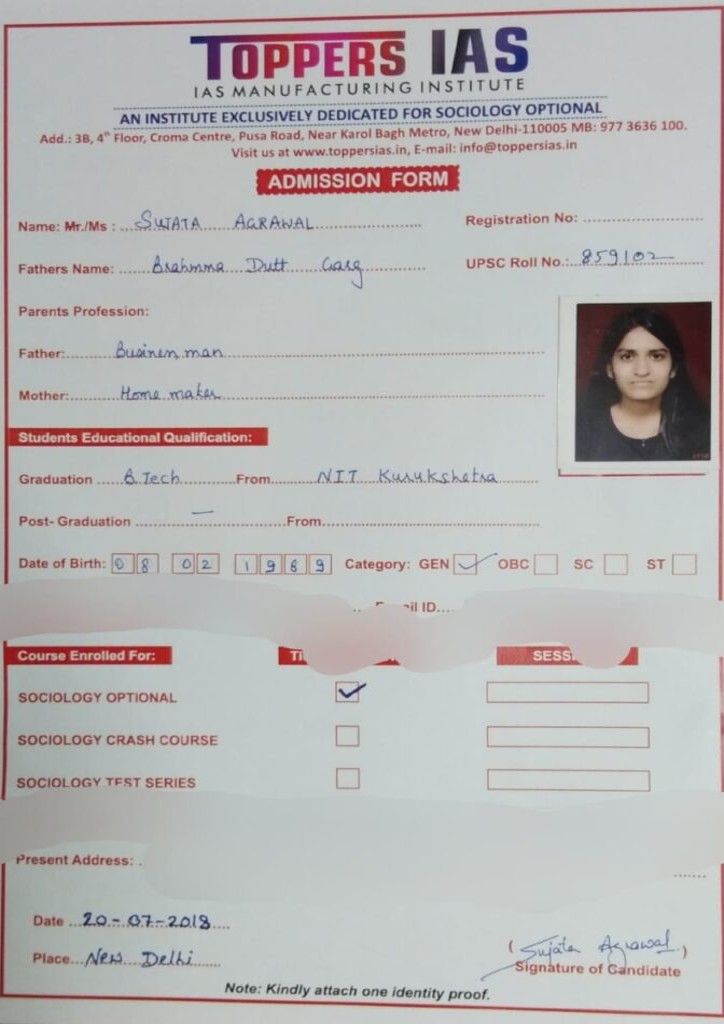 TOPPERS IAS
IAS MANUFACTURING INSTITUTE
AN INSTITUTE EXCLUSIVELY DEDICATED FOR SOCIOLOGY OPTIONAL
Add.: 3B, 4th Floor, Croma Centre, Pusa Road, Near Karol Bagh Metro, New Delhi-110005 MB: 977 3636 100.
Visit us at www.toppersias.in, E-mail: info@toppersias.in
ADMISSION FORM
Name: Mr./Ms : SUJATA AGRAWAL Registration No:
Fathers Name: Brahmma Dutt Garg UPSC Roll No.: 859102
Parents Profession:
Father: Businessman
Mother: Home maker
Students Educational Qualification:
Graduation B.Tech From NIT Kurukshetra
Post- Graduation — From
Date of Birth: 08 02 1989 Category: GEN ✓ OBC SC ST
ID....
Course Enrolled For:
SOCIOLOGY OPTIONAL ✓
SOCIOLOGY CRASH COURSE
SOCIOLOGY TEST SERIES
Present Address:
Date 20-07-2018
Place New Delhi
(Sujata Agrawal)
Signature of Candidate
Note: Kindly attach one identity proof.